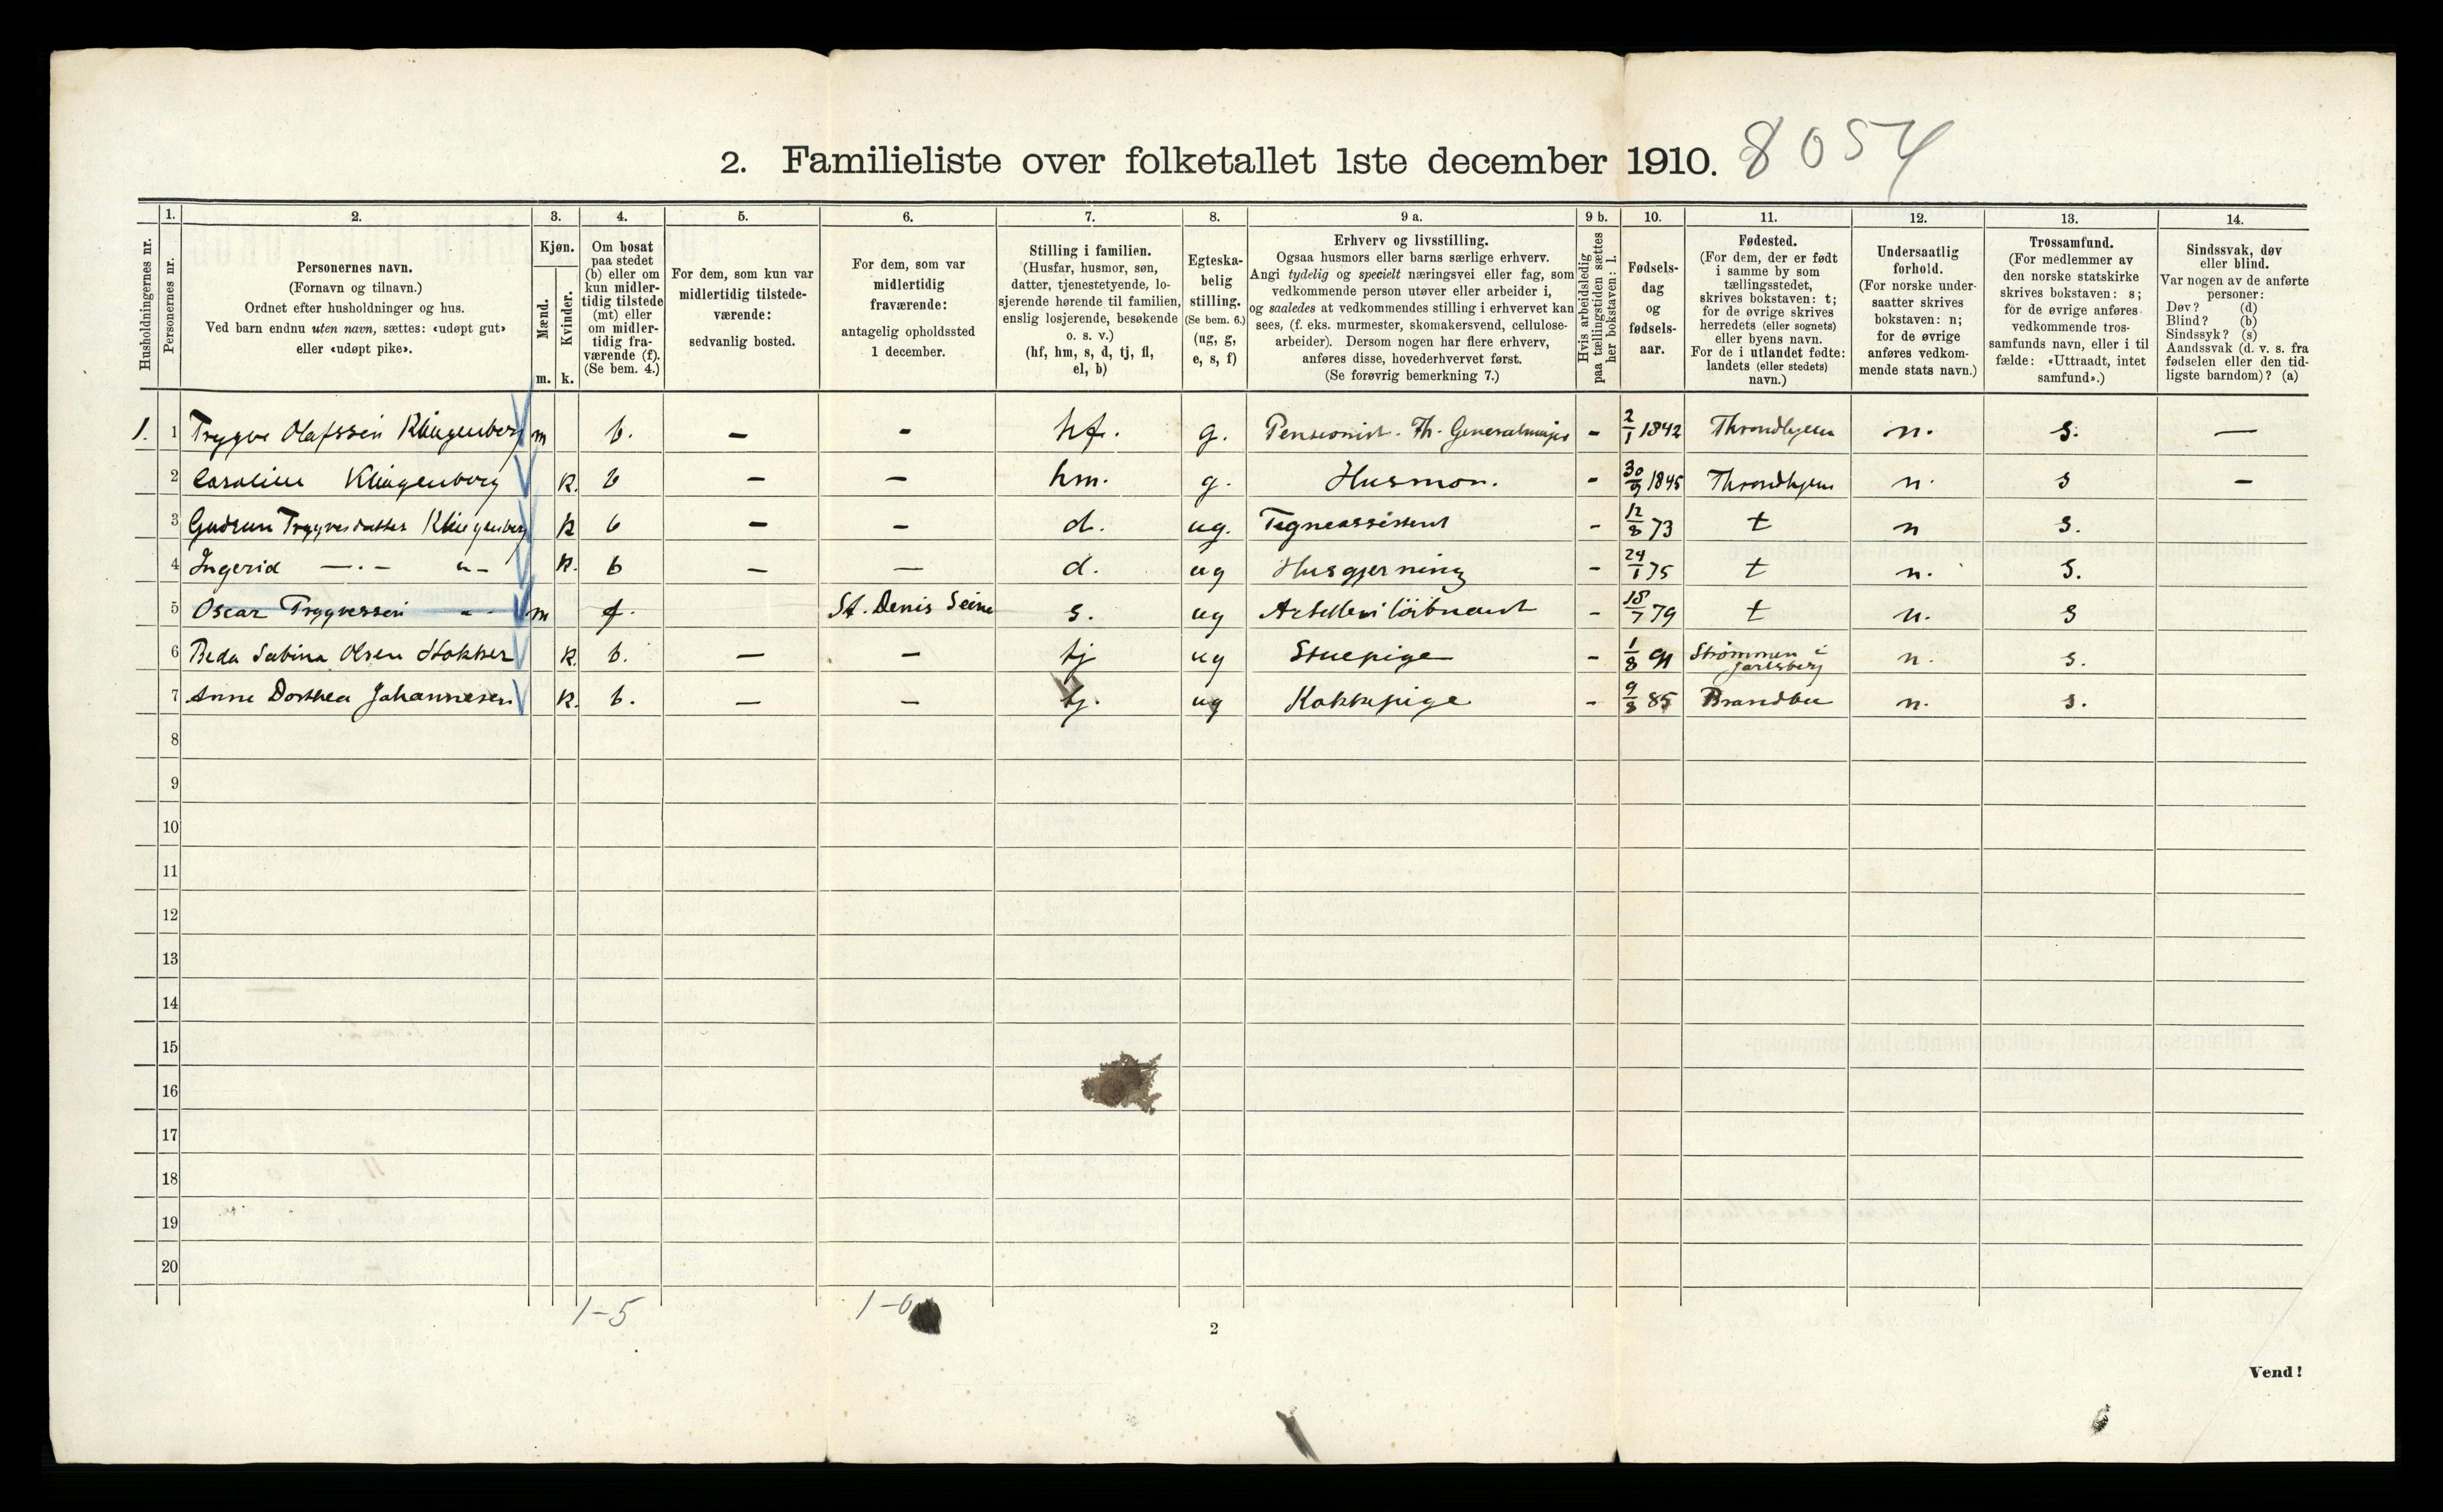 2. Familieliste over folketallet 1ste december 1910. 8054
Husholdningernes nr.
1.
Personernes nr.
2.
Personernes navn.
(Fornavn og tilnavn.)
Ordnet efter husholdninger og hus.
Ved barn endnu uten navn, sættes: «udøpt gut»
eller «udøpt pike».
3.
Kjøn.
Mænd.
m.
Kvinder.
k.
4.
Om bosat
paa stedet
(b) eller om
kun midler-
tidig tilstede
(mt) eller
om midler-
tidig fra-
værende (f).
(Se bem. 4.)
5.
For dem, som kun var
midlertidig tilstede-
værende:
sedvanlig bosted.
6.
For dem, som var
midlertidig
fraværende:
antagelig opholdssted
1 december.
7.
Stilling i familien.
(Husfar, husmor, søn,
datter, tjenestetyende, lo-
sjerende hørende til familien,
enslig losjerende, besøkende
o. s. v.)
(hf, hm, s, d, tj, fl,
el, b)
8.
Egteska-
belig
stilling.
(Se bem. 6.)
(ug, g,
e, s, f)
9 a.
Erhverv og livsstilling.
Ogsaa husmors eller barns særlige erhverv.
Angi tydelig og specielt næringsvei eller fag, som
vedkommende person utøver eller arbeider i,
og saaledes at vedkommendes stilling i erhvervet kan
sees, (f. eks. murmester, skomakersvend, cellulose-
arbeider). Dersom nogen har flere erhverv,
anføres disse, hovederhvervet først.
(Se forøvrig bemerkning 7.)
9 b.
Hvis arbeidsledig
paa tællingstiden sættes
her bokstaven: l.
10.
Fødsels-
dag
og
fødsels-
aar.
11.
Fødested.
(For dem, der er født
i samme by som
tællingsstedet,
skrives bokstaven: t;
for de øvrige skrives
herredets (eller sognets)
eller byens navn.
For de i utlandet fødte:
landets (eller stedets)
navn.)
12.
Undersaatlig
forhold.
(For norske under-
saatter skrives
bokstaven: n;
for de øvrige
anføres vedkom-
mende stats navn.)
13.
Trossamfund.
(For medlemmer av
den norske statskirke
skrives bokstaven: s;
for de øvrige anføres
vedkommende tros-
samfunds navn, eller i til
fælde: «Uttraadt, intet
samfund».)
14.
Sindssvak, døv
eller blind.
Var nogen av de anførte
personer:
Døv? (d)
Blind? (b)
Sindssyk? (s)
Aandssvak (d. v. s. fra
fødselen eller den tid-
ligste barndom)? (a)
1. 1 Trygve Olafssön Klingenberg m b. - - hf. g. Pensionist. Th. Generalmajor - 2/1 1842 Throndhjem n. s. —
2 Caroline Klingenberg k. b — — hm. g. Husmor. - 30/9 1845 Throndhjem n. s —
3 Gudrun Trygvesdatter Klingenberg k b — — d. ug. Tegneassistent - 12/8 73 t n s.
4 Ingerid —.— „— k. b — — d. ug Husgjerning - 24/1 75 t n. s.
5 Oscar Trygvessön - - m f. St. Denis Seine s. ug Artilleri löitnant - 18/7 79 t n. s
6 Beda Sabina Olsen Stokker k. b. — — tj ug Stuepige - 1/8 91 Strömmen i Jarlsberg n. s.
7 Anne Dorthea Johannesen k. b. — — tj. ug Kokkepige - 9/3 85 Brandbu n. s.
8
9
10
11
12
13
14
15
16
17
18
19
20
1-5 1-0
2
Vend!